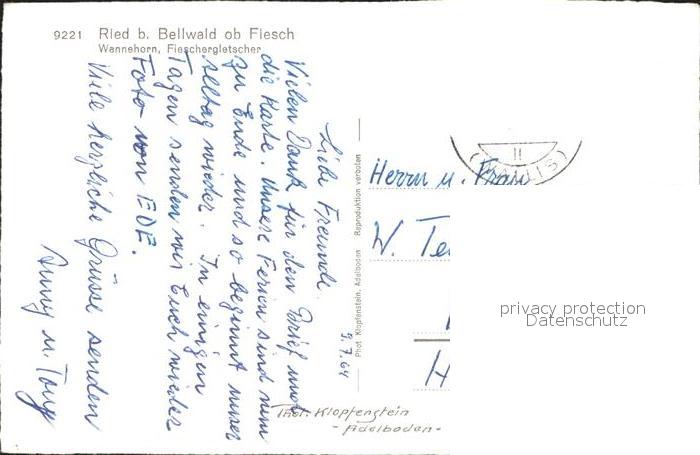 9221 Ried b. Bellwald ob Fiesch
Wannehorn, Fieschergletscher
Liebe Freunde.
Vielen Dank für den Brief und
die Karte. Unsere Ferien sind nun
zu Ende und so beginnt unser
Alltag wieder. In einigen
Tagen senden wir Euch wieder
Foto von EDE.
Viele herzliche Grüsse senden
Anny u. Tony
9.7.64
Phot. Klopfenstein, Adelboden Reproduktion verboten
(WALLIS)
Herrn u. Frau
W. Te
H
privacy protection
Datenschutz
Phot. Klopfenstein
- Adelboden -